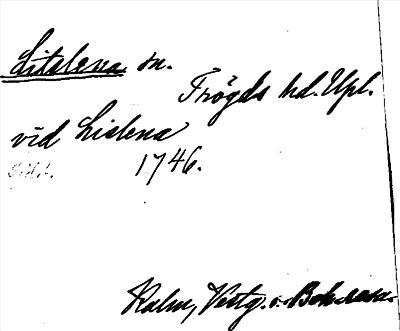 Litslena sn.
Trögds hd. Upl.
vid Lislena
1746.
Kalm, Vestg. o. Bohusresa.